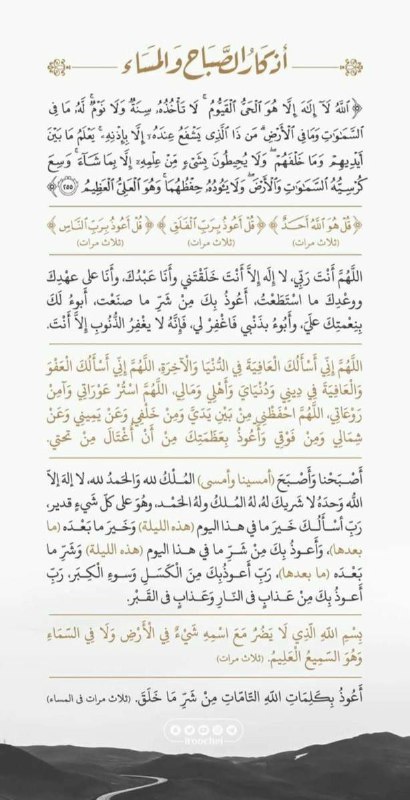 أذكار الصباح والمساء
﴿ ٱللَّهُ لَآ إِلَٰهَ إِلَّا هُوَ ٱلْحَىُّ ٱلْقَيُّومُ ۚ لَا تَأْخُذُهُۥ سِنَةٌ وَلَا نَوْمٌ ۚ لَّهُۥ مَا فِى
ٱلسَّمَٰوَٰتِ وَمَا فِى ٱلْأَرْضِ ۗ مَن ذَا ٱلَّذِى يَشْفَعُ عِندَهُۥٓ إِلَّا بِإِذْنِهِۦ ۚ يَعْلَمُ مَا بَيْنَ
أَيْدِيهِمْ وَمَا خَلْفَهُمْ ۖ وَلَا يُحِيطُونَ بِشَىْءٍ مِّنْ عِلْمِهِۦٓ إِلَّا بِمَا شَآءَ ۚ وَسِعَ
كُرْسِيُّهُ ٱلسَّمَٰوَٰتِ وَٱلْأَرْضَ ۖ وَلَا يَـُٔودُهُۥ حِفْظُهُمَا ۚ وَهُوَ ٱلْعَلِىُّ ٱلْعَظِيمُ ٢٥٥ ﴾
﴿ قُلْ هُوَ ٱللَّهُ أَحَدٌ ﴾ ﴿ قُلْ أَعُوذُ بِرَبِّ ٱلْفَلَقِ ﴾ ﴿ قُلْ أَعُوذُ بِرَبِّ ٱلنَّاسِ ﴾
(ثلاث مرات) (ثلاث مرات) (ثلاث مرات)
اللَّهُمَّ أَنْتَ رَبِّي، لا إِلَهَ إِلاَّ أَنْتَ خَلَقْتَني وأنَا عَبْدُكَ، وأَنَا على عهْدِكَ
ووعْدِكَ ما اسْتَطَعْتُ، أَعُوذُ بِكَ مِنْ شَرِّ ما صنَعْت، أَبوءُ لَكَ
بِنِعْمتِكَ عَليَّ، وأَبُوءُ بذَنْبي فَاغْفِرْ لي، فَإِنَّهُ لا يغْفِرُ الذُّنُوبَ إِلاَّ أَنْتَ.
اللَّهُمَّ إِنِّي أَسْأَلُكَ الْعَافِيَةَ فِي الدُّنْيَا وَالْآخِرَةِ، اللَّهُمَّ إِنِّي أَسْأَلُكَ الْعَفْوَ
وَالْعَافِيَةَ فِي دِينِي وَدُنْيَايَ وَأَهْلِي وَمَالِي، اللَّهُمَّ اسْتُرْ عَوْرَاتِي وَآمِنْ
رَوْعَاتِي، اللَّهُمَّ احْفَظْنِي مِنْ بَيْنِ يَدَيَّ وَمِنْ خَلْفِي وَعَنْ يَمِينِي وَعَنْ
شِمَالِي وَمِنْ فَوْقِي وَأَعُوذُ بِعَظَمَتِكَ مِنْ أَنْ أُغْتَالَ مِنْ تَحْتِي.
أَصْبَحْنا وَأَصْبَحَ (أمسينا وأمسى) المُلْكُ لله وَالحَمدُ لله، لا إلهَ إلاّ
اللّه وَحدَهُ لا شَريكَ لهُ، لهُ المُلكُ ولهُ الحَمْد، وهُوَ على كلّ شَيءٍ قدير،
رَبِّ أسْأَلُكَ خَيرَ ما في هذا اليوم (هذه الليلة) وَخَيرَ ما بَعْدَه (ما
بعدها)، وَأَعوذُ بِكَ مِنْ شَرِّ ما في هذا اليوم (هذه الليلة) وَشَرِّ ما
بَعْدَه (ما بعدها)، رَبِّ أَعوذُ بِكَ مِنَ الْكَسَلِ وَسوءِ الْكِبَرِ، رَبِّ
أَعوذُ بِكَ مِنْ عَذابٍ في النّارِ وَعَذابٍ في القَبْر.
بِسْمِ اللهِ الَّذِي لَا يَضُرُّ مَعَ اسْمِهِ شَيْءٌ فِي الْأَرْضِ وَلَا فِي السَّمَاءِ
وَهُوَ السَّمِيعُ الْعَلِيمُ. (ثلاث مرات)
أَعُوذُ بِكَلِمَاتِ اللَّهِ التَّامَّاتِ مِنْ شَرِّ مَا خَلَقَ. (ثلاث مرات في المساء)